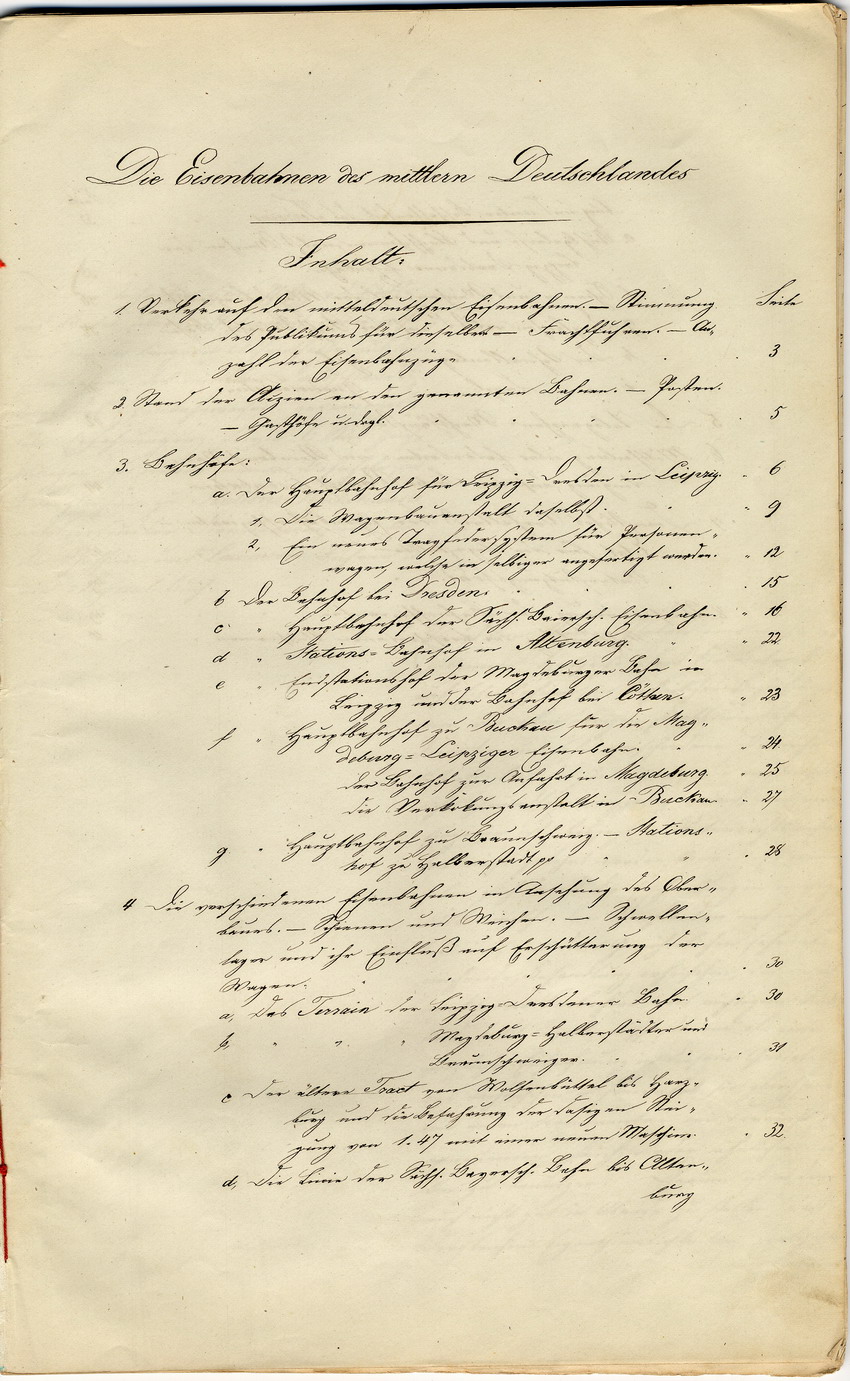 Die Eisenbahnen des mittlern Deutschlandes
Inhalt:
Seite
1. Verkehr auf den mitteldeutschen Eisenbahnen. — Stimmung
des Publikums für dieselben — Frachtfuhren. — An-
zahl der Eisenbahnzüge 3
2. Stand der Actien an den genannten Bahnen. — Posten.
— Gasthöfe u. dergl. 5
3. Bahnhöfe:
a. Der Hauptbahnhof für Leipzig-Dresden in Leipzig. 6
1, Die Wagenbauanstalt daselbst. " 9
2, Ein neues Tragfedersystem für Personen-
wagen, welche in selbiger angefertigt werden. " 12
b Der Bahnhof bei Dresden. 15
c " Hauptbahnhof der Sächs. Baiersch. Eisenbahn. " 16
d " Stations-Bahnhof in Altenburg. " 22
e " Endstationshof der Magdeburger Bahn in
Leipzig und der Bahnhof bei Cöthen. " 23
f " Hauptbahnhof zu Buckau für die Mag-
deburg-Leipziger Eisenbahn. " 24
der Bahnhof zur Anfahrt in Magdeburg. " 25
die Verkokungsanstalt in Buckau. " 27
g " Hauptbahnhof zu Braunschweig. — Stations-
hof zu Halberstadt pp " 28
4 Die verschiedenen Eisenbahnen in Ansehung des Ober-
baues. — Schienen und Weichen. — Schwellen-
lager und ihr Einfluß auf Erschütterung der
Wagen. 30
a, Das Terrain der Leipzig-Dresdener Bahn " 30
b, " " " Magdeburg-Halberstädter und
Braunschweiger. 31
c Der ältere Tract von Wolfenbüttel bis Harz-
burg und die Befahrung der dasigen Nei-
gung von 1.47 mit einer neuen Maschine. " 32
d, Die Linie der Sächs. Bayersch. Bahn bis Alten-
burg